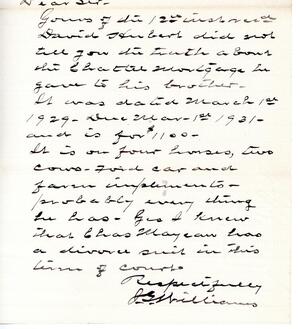 Dear Sir-
Yours of the 12th inst recd
David Hubert did not
tell you the truth about
the Chattle Mortgage he
gave to his brother-
It was dated March 1st
1929- Due Mar-1st-1931-
and is for $1100-
It is on four horses, two
cows- Ford car and
farm implements-
probably every thing
he has- I Knew
that Chas has
a divorce suit in this
term of court
Respectfully
Williams